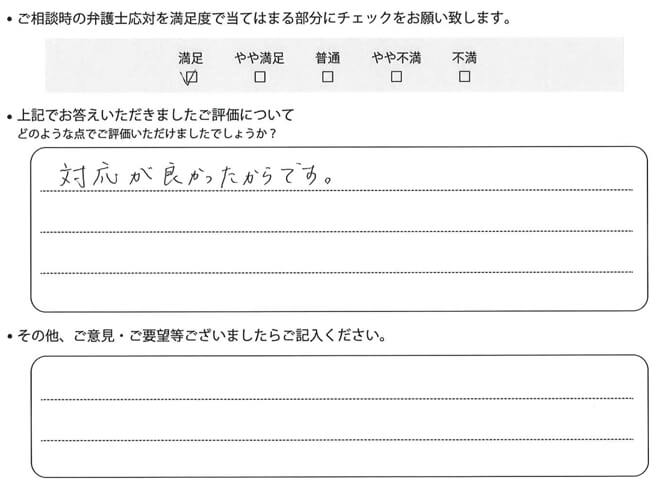 • ご相談時の弁護士応対を満足度で当てはまる部分にチェックをお願い致します。
満足 やや満足 普通 やや不満 不満
☑ □ □ □ □
• 上記でお答えいただきましたご評価について
どのような点でご評価いただけましたでしょうか？
対応が良かったからです。
• その他、ご意見・ご要望等ございましたらご記入ください。